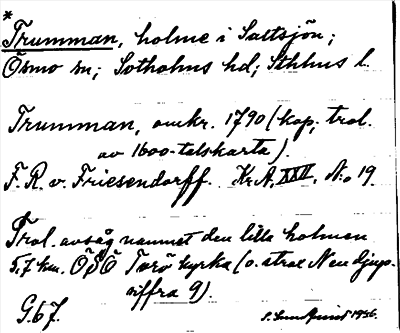 *
Trumman, holme i Saltsjön;
Ösmo sn; Sotholms hd; Sthlms l.
Trumman, omkr. 1790 (kop; trol.
av 1600-talskarta).
F. R. v. Friesendorff. Kr.A, XXII, No 19.
Trol. avsåg namnet den lilla holmen
5,7 km. ÖSÖ Torö kyrka (o. strax N en djup-
siffra 9).
G. 67.
1936.